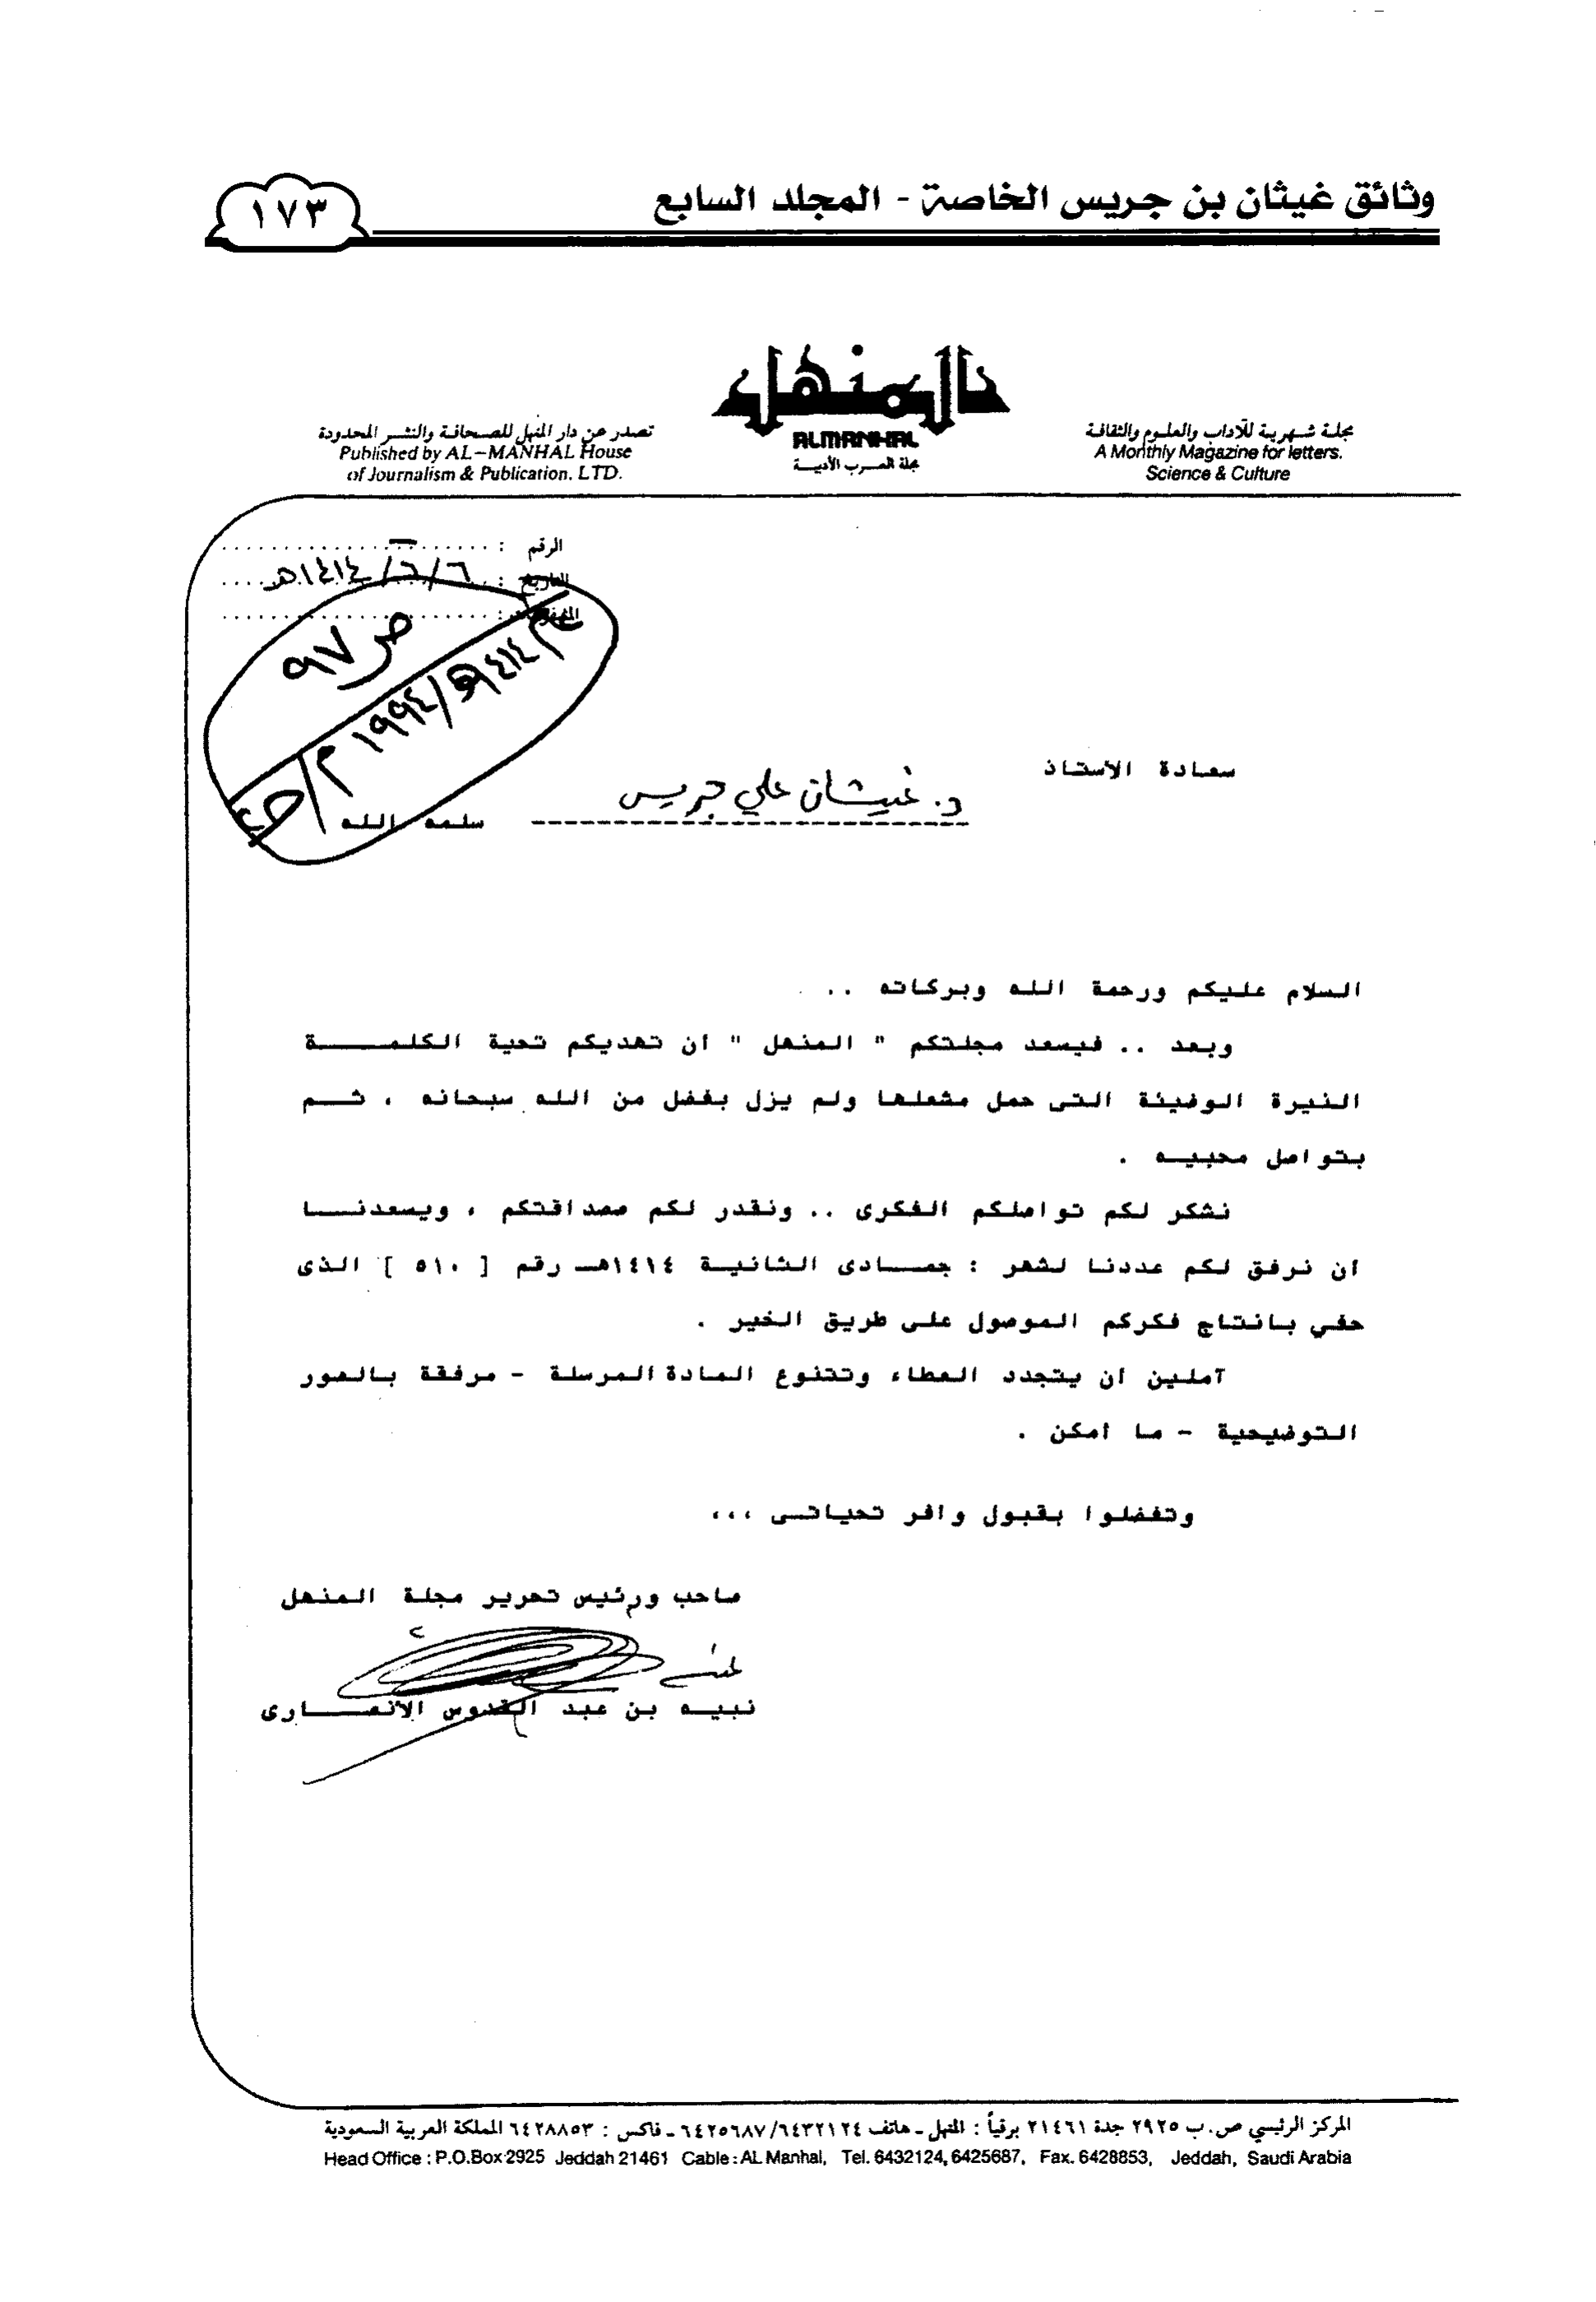 وثائق غيثان بن جريس الخاصة - المجلد السابع
١٧٣
المنهل
ALMANHAL
مجلة العرب الأدبية
مجلة شهرية للآداب والعلوم والثقافة
A Monthly Magazine for letters.
Science & Culture
تصدر عن دار المنهل للصحافة والنشر المحدودة
Published by AL-MANHAL House
of Journalism & Publication. LTD.
الرقم :
التاريخ : ٦/٦/١٤١٤هـ
ص ٩٧
١٤١٤هـ/١٩٩٤م
سعادة الأستاذ
د. غيثان علي جريس سلمه الله
السلام عليكم ورحمة الله وبركاته ..
وبعد .. فيسعد مجلتكم " المنهل " أن تهديكم تحية الكلمة
النيرة الوضيئة التى حمل مشعلها ولم يزل بفضل من الله سبحانه ، ثم
بتواصل محبيه .
نشكر لكم تواصلكم الفكرى .. ونقدر لكم مصداقتكم ، ويسعدنا
أن نرفق لكم عددنا لشهر : جمادى الثانية ١٤١٤هـ رقم [ ٥١٠ ] الذى
حفي بانتاج فكركم الموصول على طريق الخير .
آملين أن يتجدد العطاء وتتنوع المادة المرسلة - مرفقة بالصور
التوضيحية - ما أمكن .
وتفضلوا بقبول وافر تحياتى ،،،
صاحب ورئيس تحرير مجلة المنهل
نبيه بن عبد القدوس الأنصارى
المركز الرئيسي ص.ب ٢٩٢٥ جدة ٢١٤٦١ برقياً : المنهل - هاتف ٦٤٢٥٦٨٧/٦٤٣٢١٢٤ - فاكس : ٦٤٢٨٨٥٣ المملكة العربية السعودية
Head Office : P.O.Box 2925 Jeddah 21461 Cable : AL Manhal, Tel. 6432124, 6425687, Fax. 6428853, Jeddah, Saudi Arabia